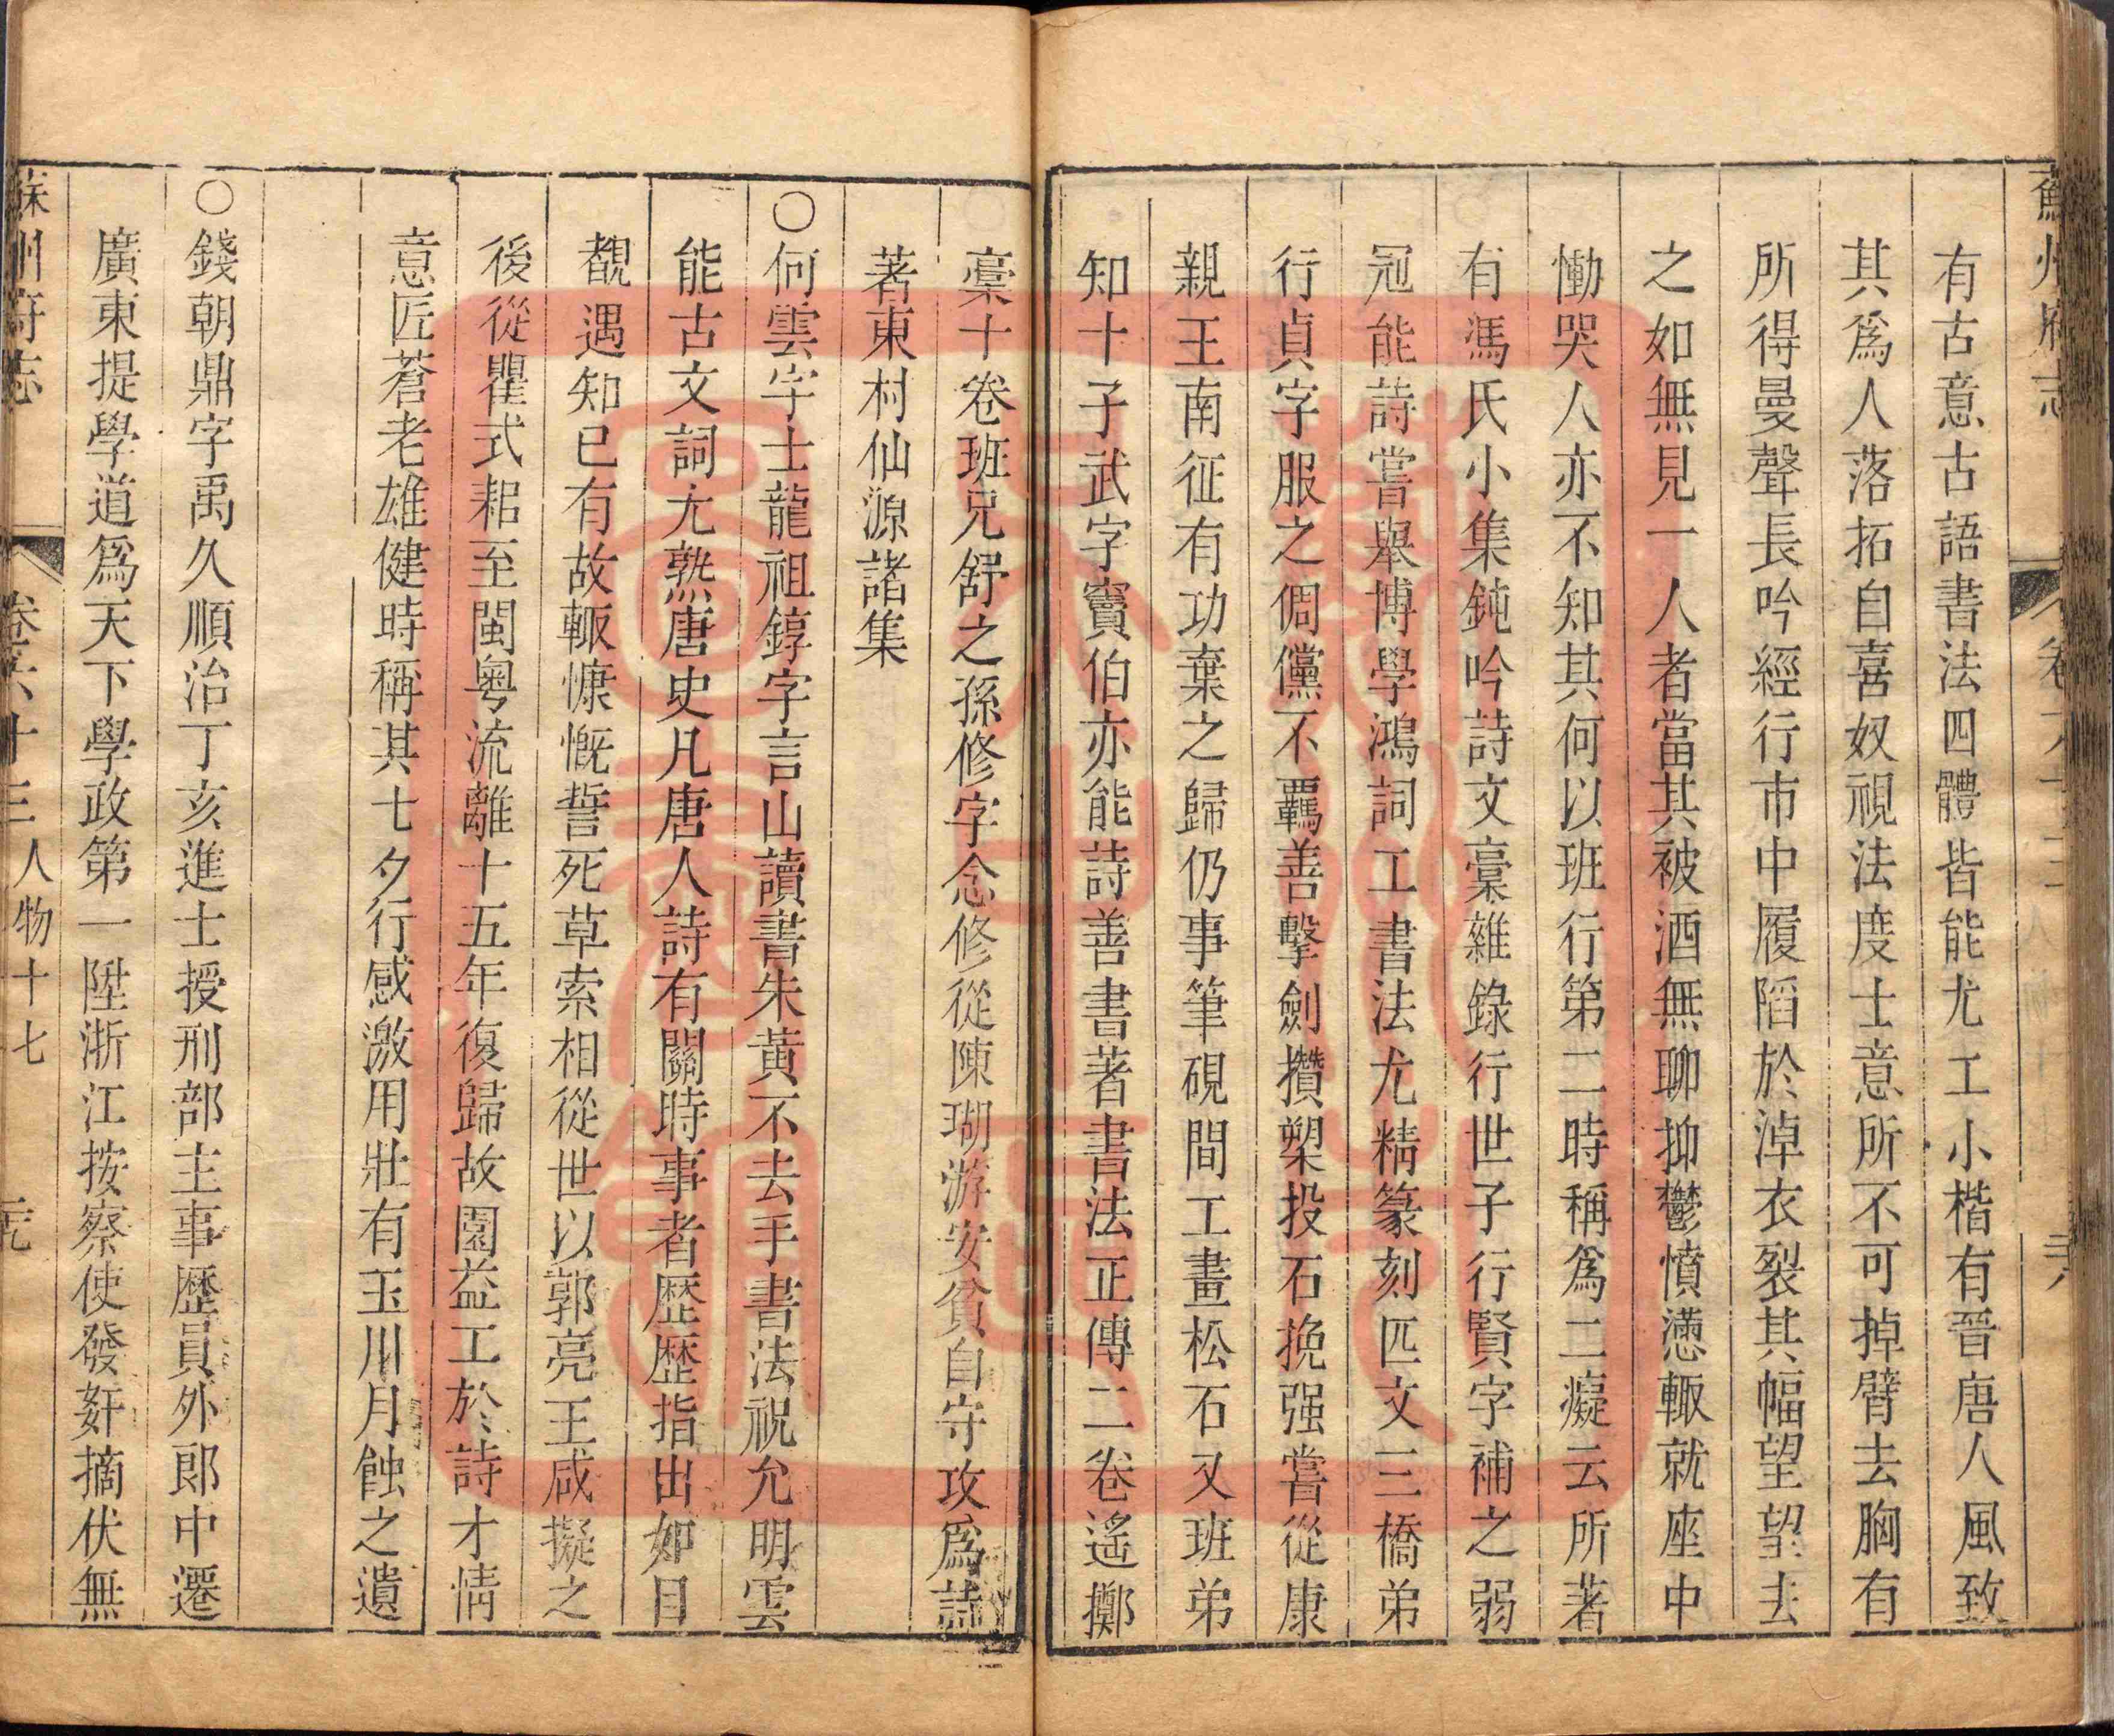 蘇州府志
卷六十三
人物十七
有古意古語書法四體皆能尤工小楷有晉唐人風致
其爲人落拓自喜奴視法度士意所不可掉臂去胸有
所得曼聲長吟經行市中履蹈於淖衣裂其幅望望去
之如無見一人者當其被酒無聊抑鬱憤懣輒就座中
慟哭人亦不知其何以班行第二時稱爲二癡云所著
有馮氏小集鈍吟詩文稾雜錄行世子行賢字補之弱
冠能詩嘗舉博學鴻詞工書法尤精篆刻匹文三橋弟
行貞字服之倜儻不羈善擊劍攢槊投石挽强嘗從康
親王南征有功棄之歸仍事筆硯間工畫松石又班弟
知十子武字竇伯亦能詩善書著書法正傳二卷遙擲
稾十卷班兄舒之孫修字念修從陳瑚游安貧自守攻爲詩
著東村仙源諸集
〇何雲字士龍祖錞字言山讀書朱黃不去手書法祝允明雲
能古文詞尤熟唐史凡唐人詩有關時事者歷歷指出如目
覩遇知已有故輒慷慨誓死草索相從世以郭亮王咸擬之
後從瞿式耜至閩粵流離十五年復歸故園益工於詩才情
意匠蒼老雄健時稱其七夕行感激用壯有玉川月蝕之遺
〇錢朝鼎字禹久順治丁亥進士授刑部主事歷員外郎中遷
廣東提學道爲天下學政第一陞浙江按察使發奸摘伏無
蘇州府志
卷六十三
人物十七